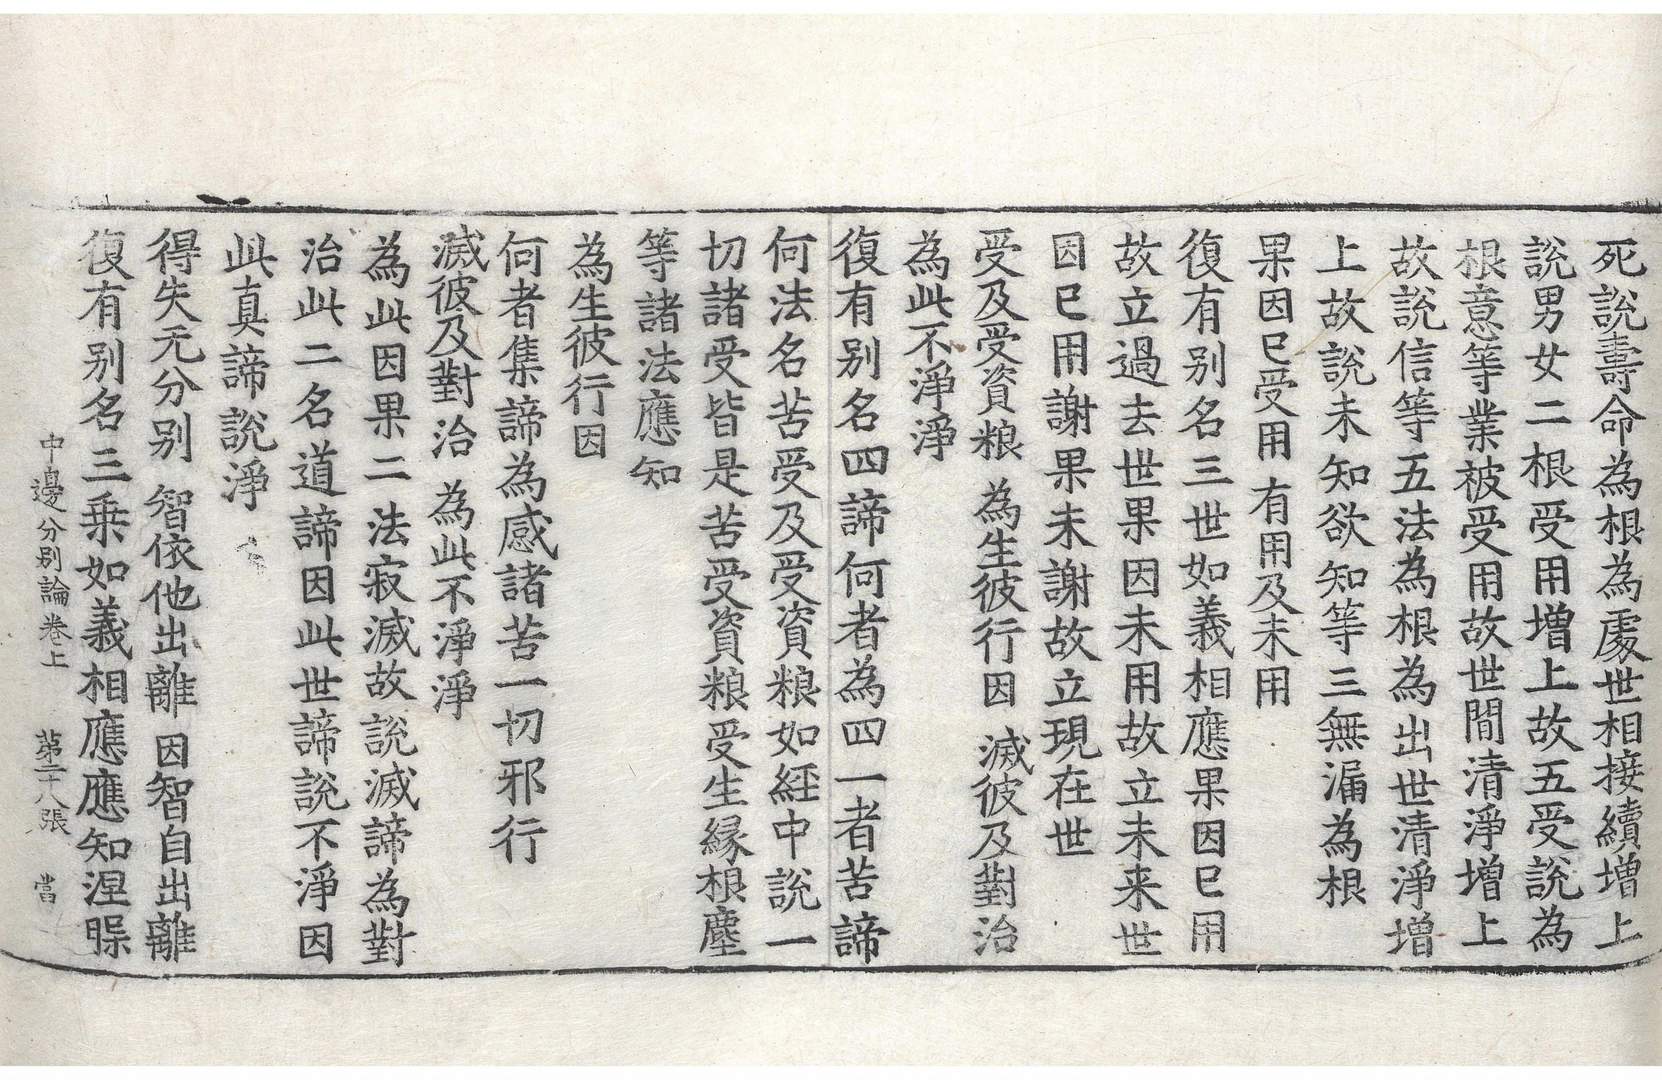 死說壽命為根為處世相接續增上
說男女二根受用增上故五受說為
根意等業被受用故世間清淨增上
故說信等五法為根為出世清淨增
上故說未知欲知等三無漏為根
果因已受用 有用及未用
復有別名三世如義相應果因已用
故立過去世果因未用故立未来世
因已用謝果未謝故立現在世
受及受資粮 為生彼行因 滅彼及對治
為此不淨淨
復有別名四諦何者為四一者苦諦
何法名苦受及受資粮如經中說一
切諸受皆是苦受資粮受生縁根塵
等諸法應知
為生彼行因
何者集諦為感諸苦一切邪行
滅彼及對治 為此不淨淨
為此因果二法寂滅故說滅諦為對
治此二名道諦因此世諦說不淨因
此真諦說淨
得失无分別 智依他出離 因智自出離
復有別名三乗如義相應應知涅槃
中邊分別論卷上 第二十八張 當